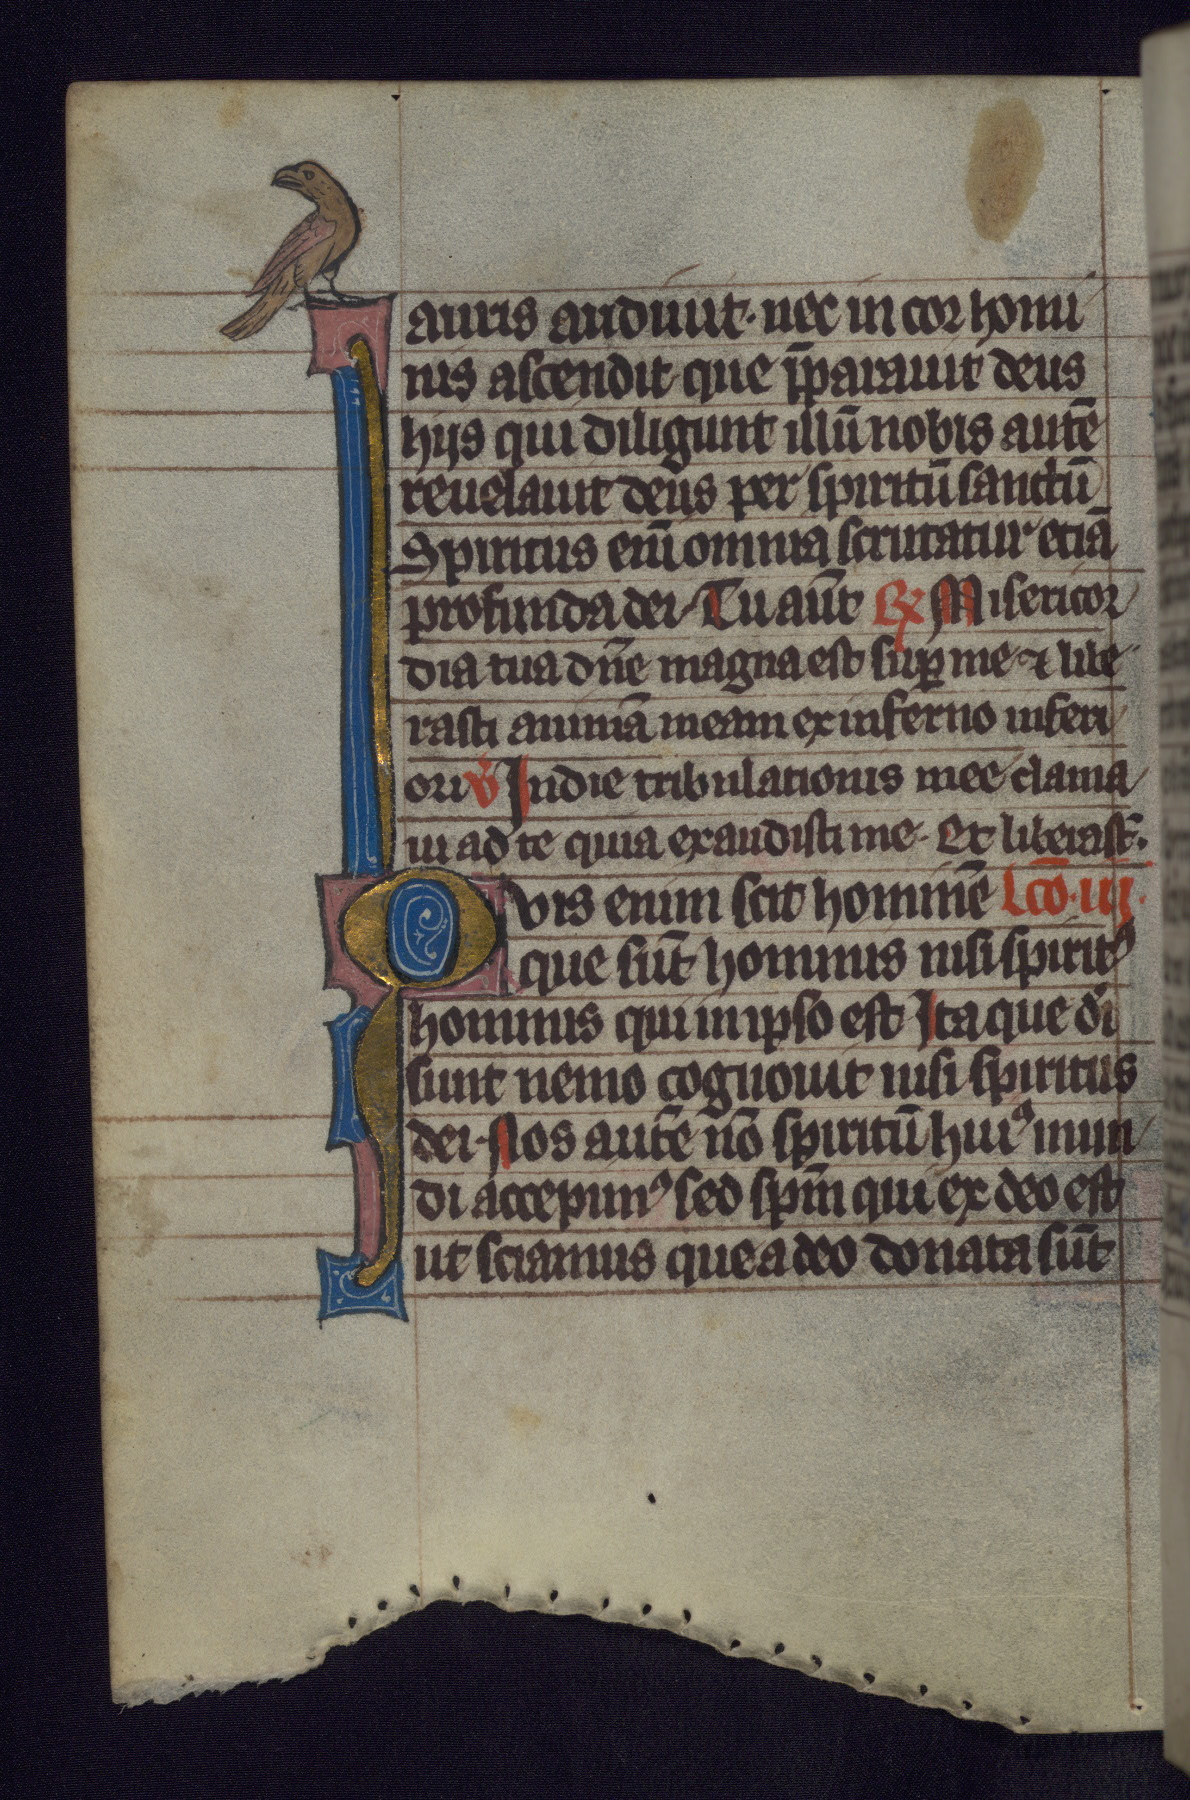 auris audiuit· nec in cor homi
nis ascendit que p̄parauit deus
hijs qui diligunt illū nobis autē
reuelauit deus per spiritū sanctū
Spiritus eni᷑ omnia scrutatur etiā
profunda dei· Tu aūt ℞ Misericor
dia tua dn̄e magna est suꝑ me ⁊ libe
rasti animā meam ex inferno inferi
ori ℣ In die tribulationis mee clama
ui ad te quia exaudisti me· Et liberast̄·
Quis enim scit hominē Lcō·iij·
que sūt hominis nisi spiritꝰ
hominis qui in ipso est Ita que di
sunt nemo cognouit nisi spiritus
dei· Nos autē nō spiritū huiꝰ mun
di accepimꝰ sed spm̄ qui ex deo est
ut sciamus que a deo donata sūt